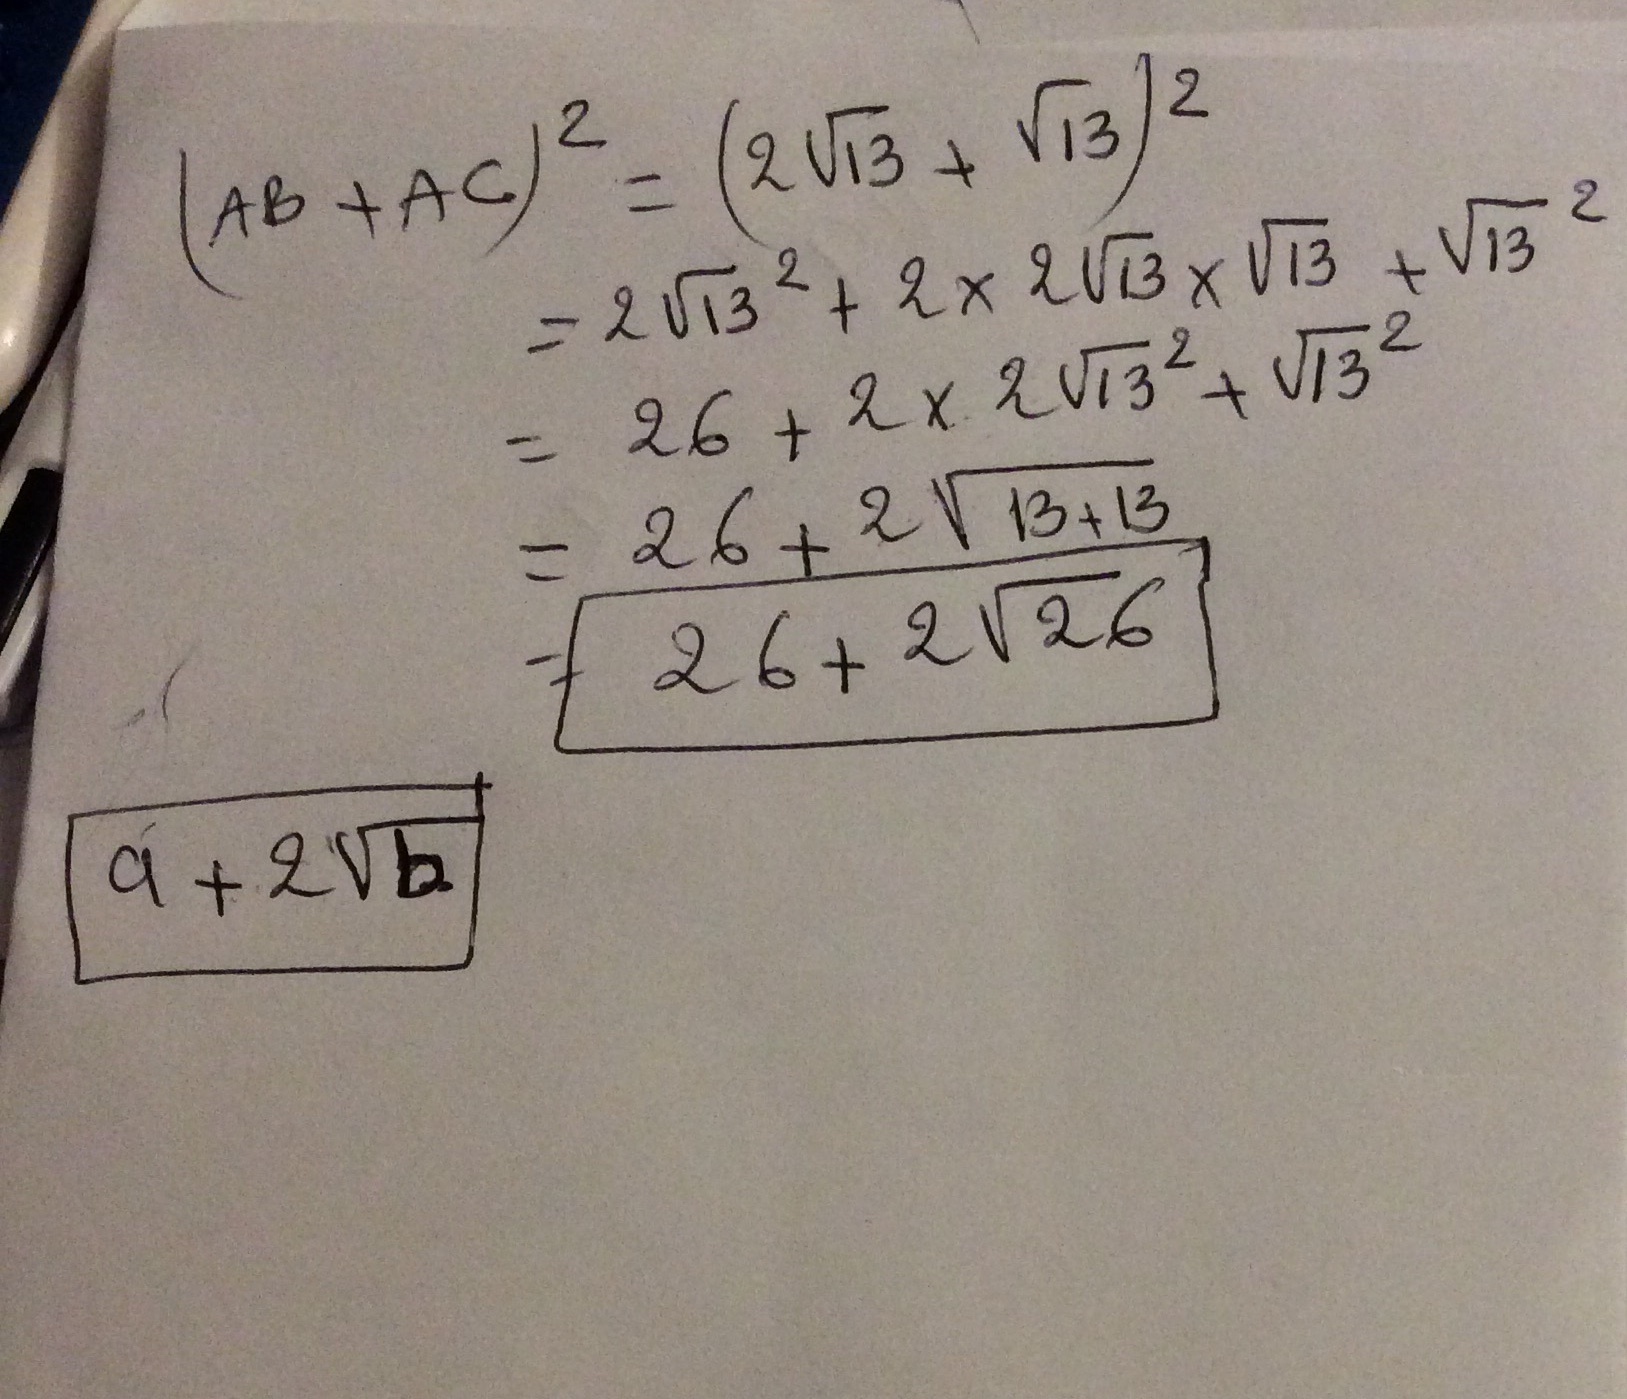 (AB + AC)² = (2√13 + √13)²
= 2√13² + 2 × 2√13 × √13 + √13²
= 26 + 2 × 2√13² + √13²
= 26 + 2√13+13
= 26 + 2√26
a + 2√b